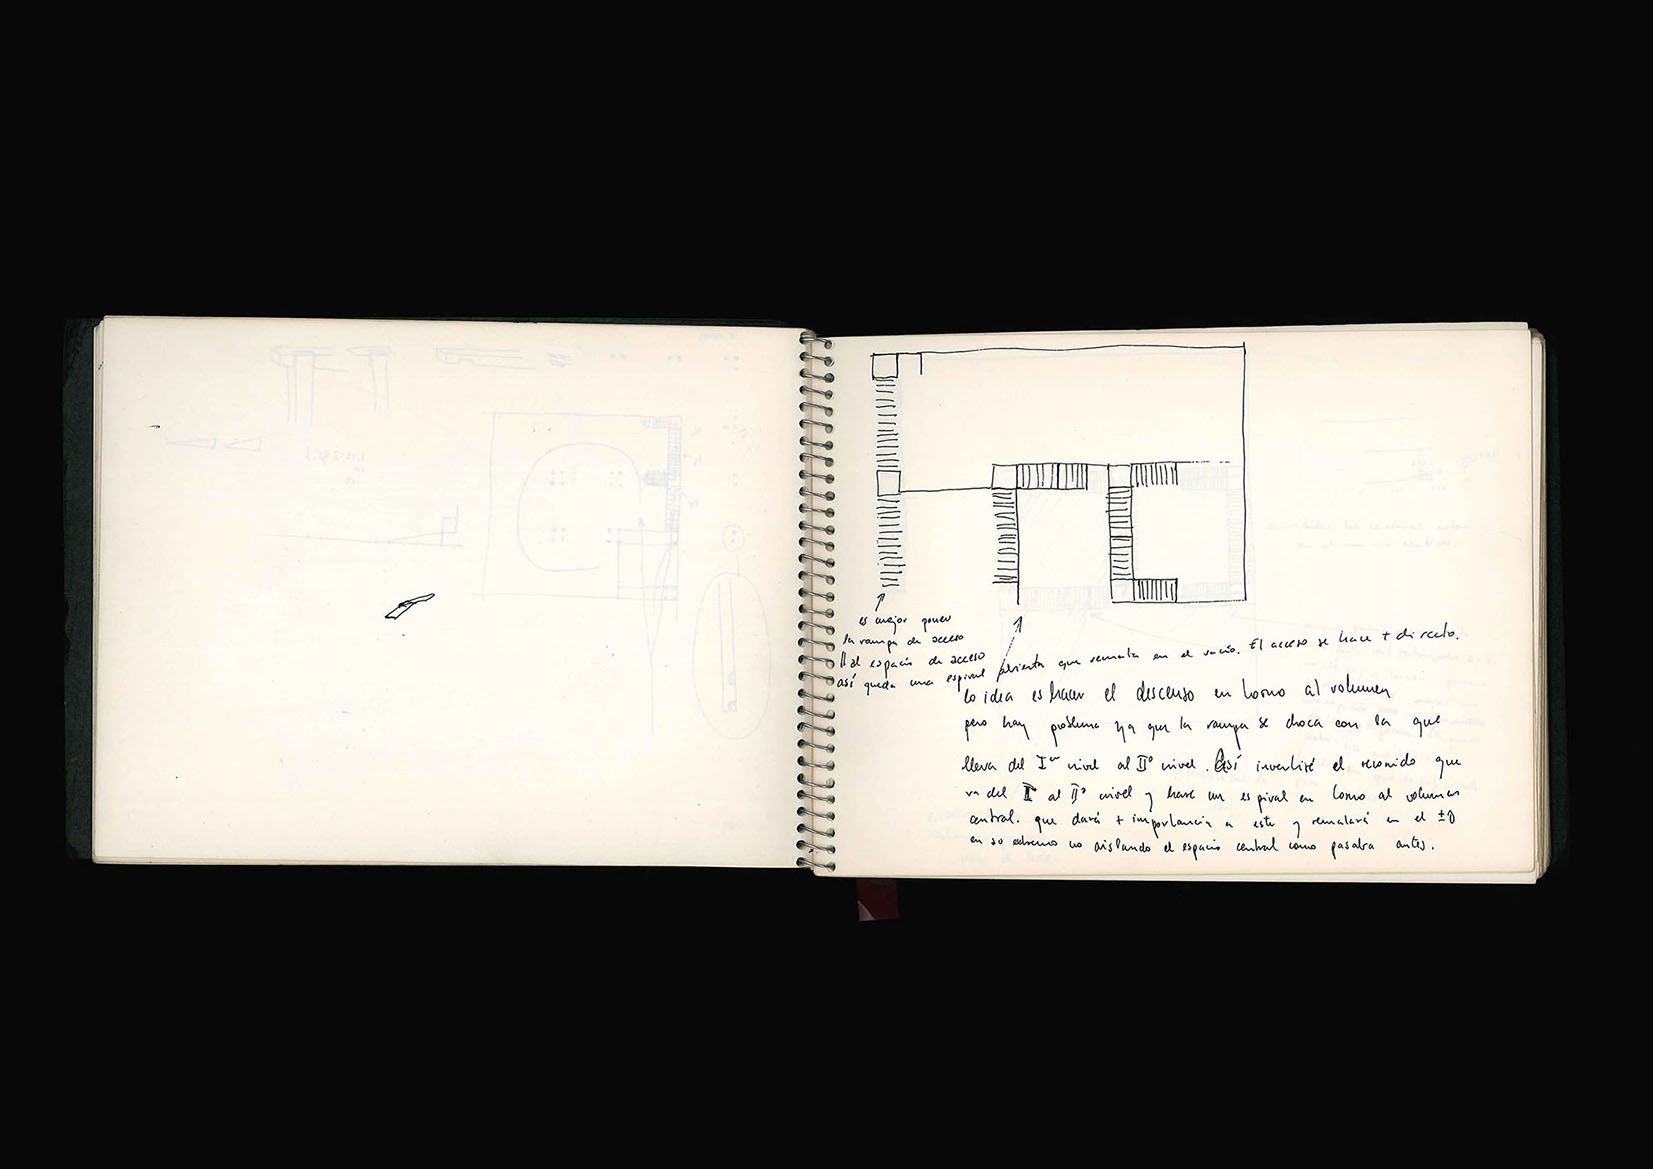 es mejor poner
la rampa de acceso
// al espacio de acceso
así queda una espiral abierta que remata en el vacío. El acceso se hace + directo.
la idea es hacer el descenso en torno al volumen
pero hay problema ya que la rampa se choca con la que
lleva del Iᵉʳ nivel al IIº nivel. Así invertiré el recorrido que
va del I al IIº nivel y haré un espiral en torno al volumen
central. que dará + importancia a este y rematará en el ±0
en su extremo no aislando el espacio central como pasaba antes.